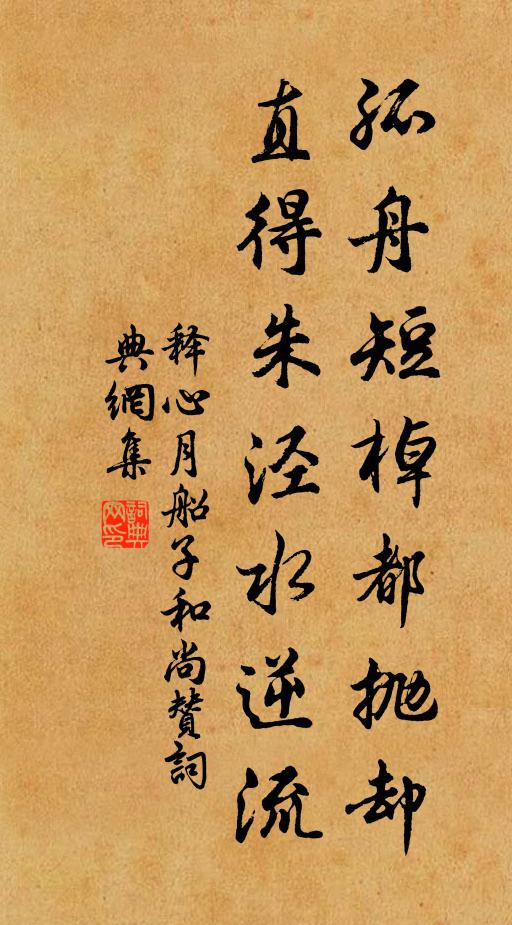 孤舟短棹都抛却
直得朱泾水逆流
释心月船子和尚賛詞
典網集
詞典
网印